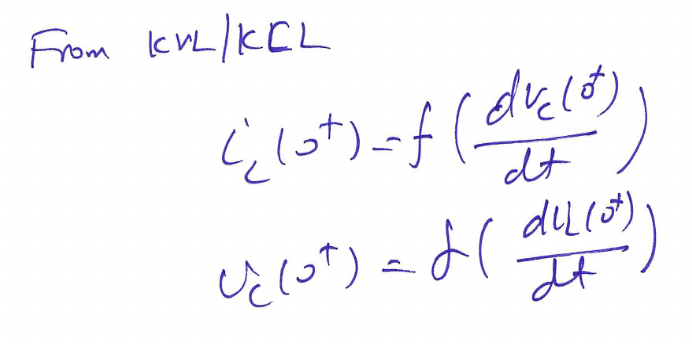 From KVL/KCL
i_c(0⁺) = f(dv_c(0⁺)/dt)
v_c(0⁺) = f(di_L(0⁺)/dt)